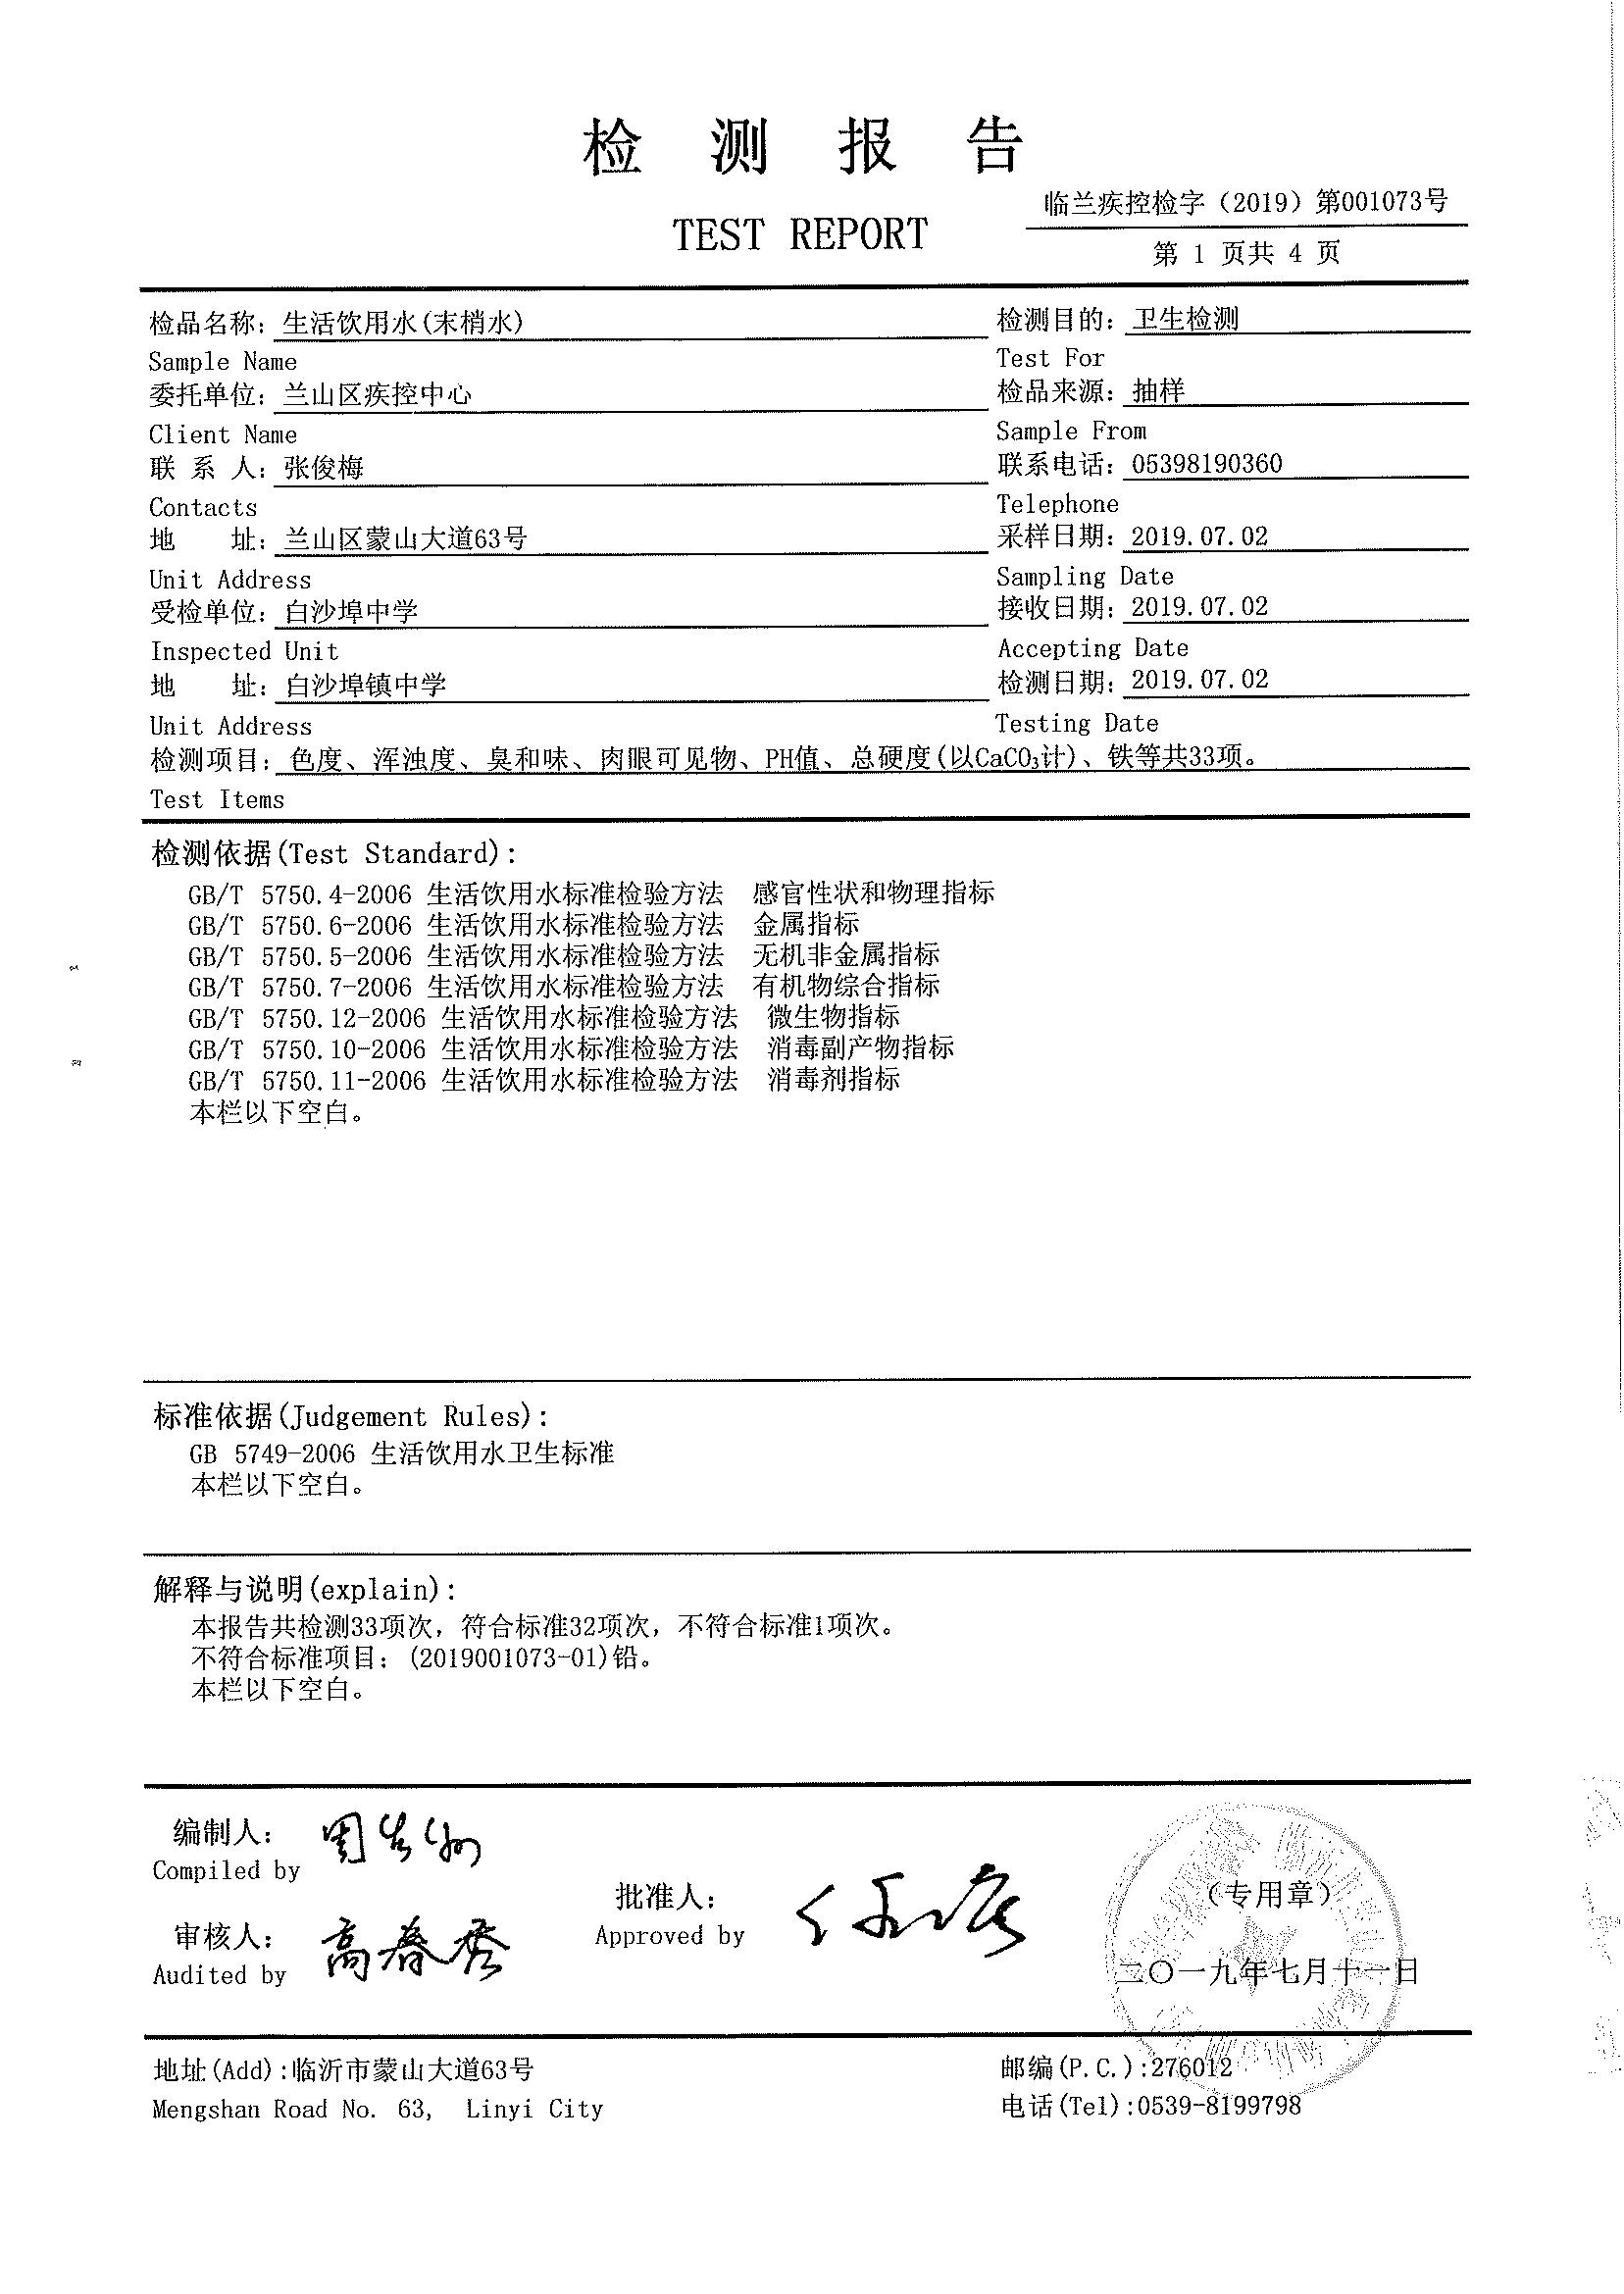 检 测 报 告
TEST REPORT
临兰疾控检字（2019）第001073号
第 1 页共 4 页
检品名称：生活饮用水(末梢水) 检测目的：卫生检测
Sample Name Test For
委托单位：兰山区疾控中心 检品来源：抽样
Client Name Sample From
联 系 人：张俊梅 联系电话：05398190360
Contacts Telephone
地 址：兰山区蒙山大道63号 采样日期：2019.07.02
Unit Address Sampling Date
受检单位：白沙埠中学 接收日期：2019.07.02
Inspected Unit Accepting Date
地 址：白沙埠镇中学 检测日期：2019.07.02
Unit Address Testing Date
检测项目：色度、浑浊度、臭和味、肉眼可见物、PH值、总硬度(以CaCO₃计)、铁等共33项。
Test Items
检测依据(Test Standard)：
GB/T 5750.4-2006 生活饮用水标准检验方法 感官性状和物理指标
GB/T 5750.6-2006 生活饮用水标准检验方法 金属指标
GB/T 5750.5-2006 生活饮用水标准检验方法 无机非金属指标
GB/T 5750.7-2006 生活饮用水标准检验方法 有机物综合指标
GB/T 5750.12-2006 生活饮用水标准检验方法 微生物指标
GB/T 5750.10-2006 生活饮用水标准检验方法 消毒副产物指标
GB/T 5750.11-2006 生活饮用水标准检验方法 消毒剂指标
本栏以下空白。
标准依据(Judgement Rules)：
GB 5749-2006 生活饮用水卫生标准
本栏以下空白。
解释与说明(explain)：
本报告共检测33项次，符合标准32项次，不符合标准1项次。
不符合标准项目：(2019001073-01)铅。
本栏以下空白。
编制人：
Compiled by
批准人：
Approved by
（专用章）
审核人：高春秀
Audited by
二〇一九年七月十一日
地址(Add):临沂市蒙山大道63号 邮编(P.C.):276012
Mengshan Road No. 63, Linyi City 电话(Tel):0539-8199798